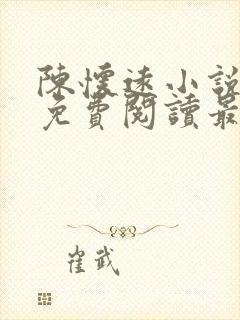 陳懷遠小說
免費閱讀最
崔武